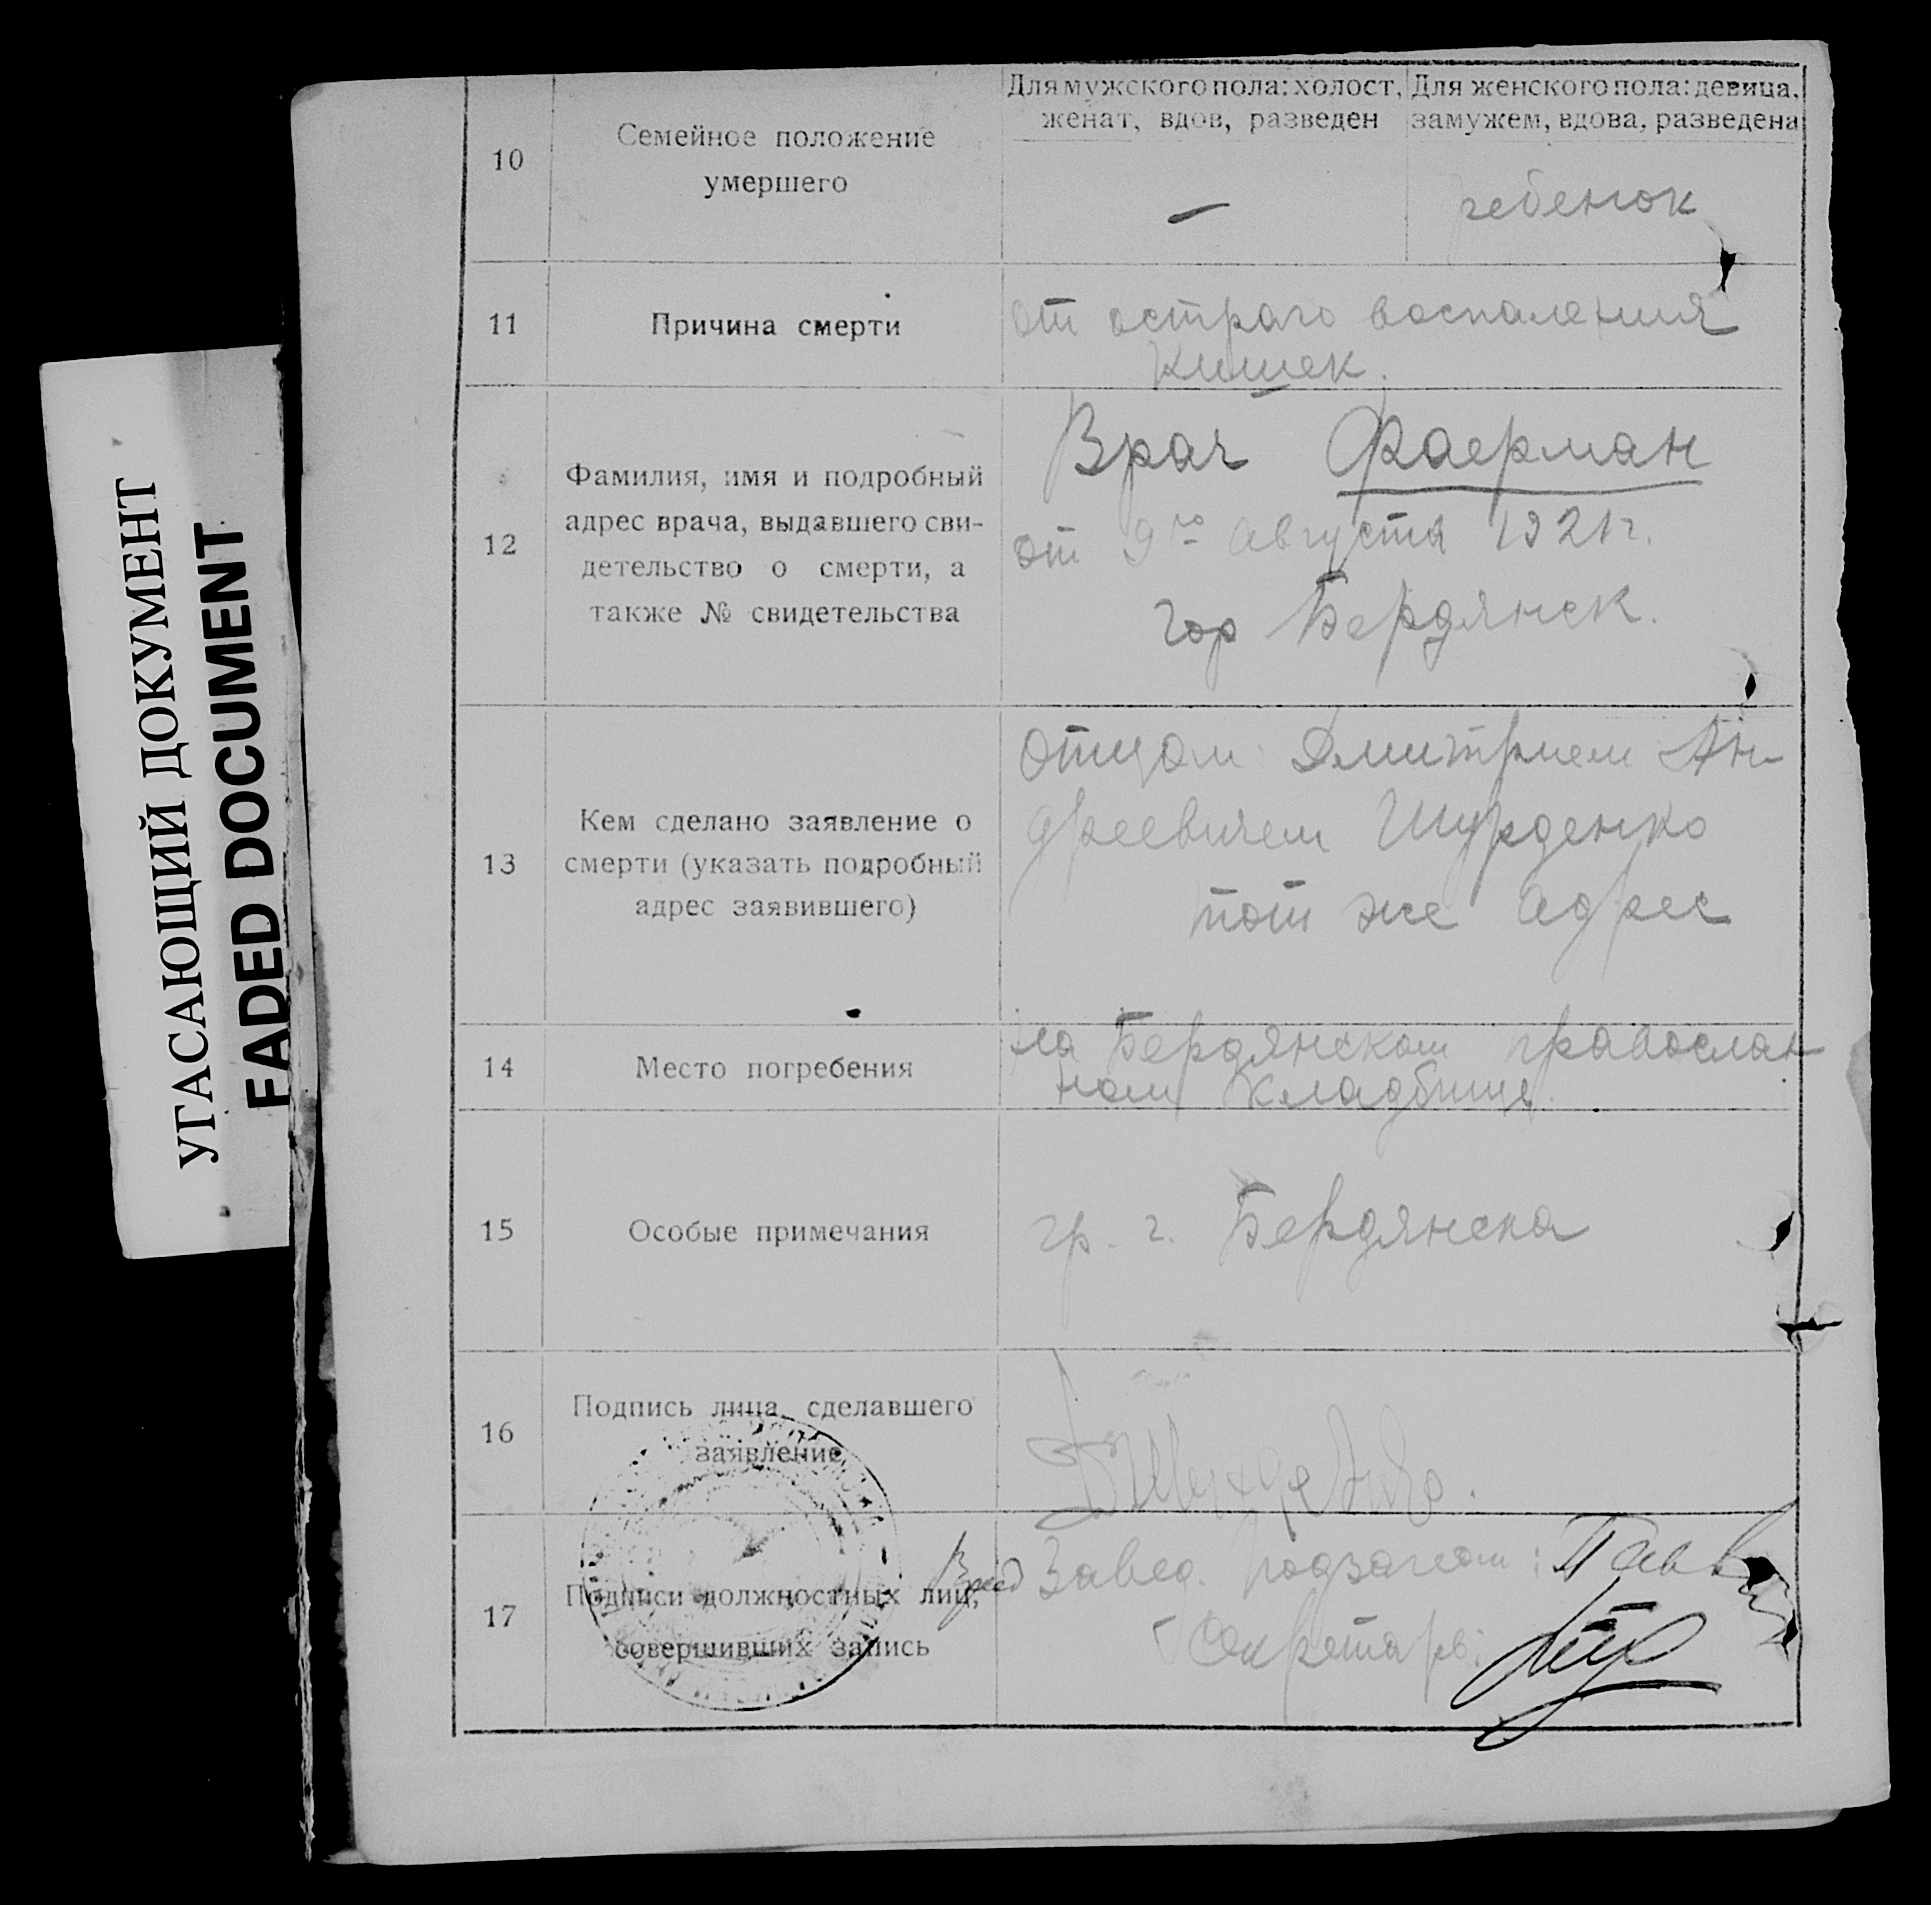 УГАСАЮЩИЙ ДОКУМЕНТ
FADED DOCUMENT
10
Семейное положение
умершего
Для мужского пола: холост,
женат, вдов, разведен
Для женского пола: девица,
замужем, вдова, разведена
—
ребенок
11
Причина смерти
от остраго воспаления
кишек.
12
Фамилия, имя и подробный
адрес врача, выдавшего сви-
детельство о смерти, а
также № свидетельства
Врач Фаерман
от 9го Августа 1921 г.
гор Бердянск.
13
Кем сделано заявление о
смерти (указать подробный
адрес заявившего)
Отцом Дмитрием Ан-
дреевичем Шурденко
тот же адрес
14
Место погребения
на Бердянском православ
ном кладбище.
15
Особые примечания
гр. г. Бердянска
16
Подпись лица, сделавшего
заявление
17
Подписи должностных лиц,
совершивших запись
Завед. подзагсом:
Секретарь: